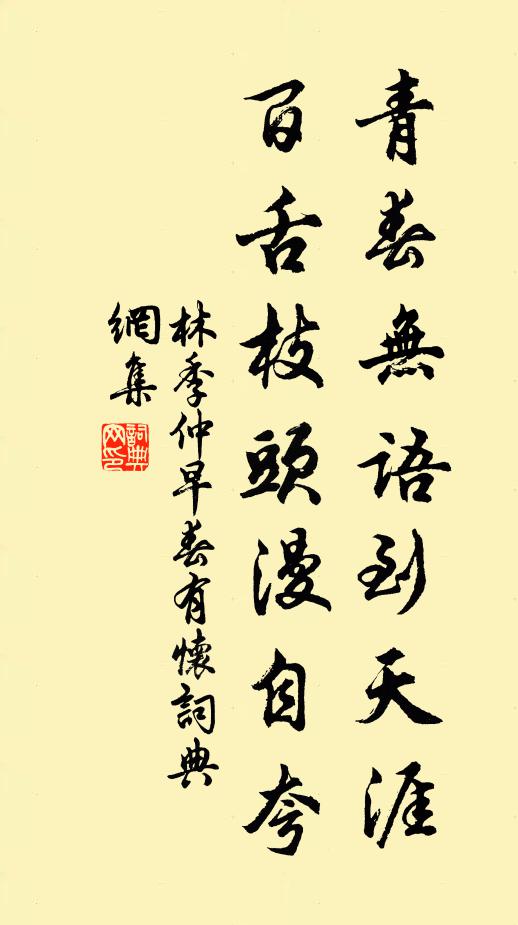 青春無語到天涯
百舌枝頭漫自夸
林季仲早春有懷詞典
網集
詞典
网印